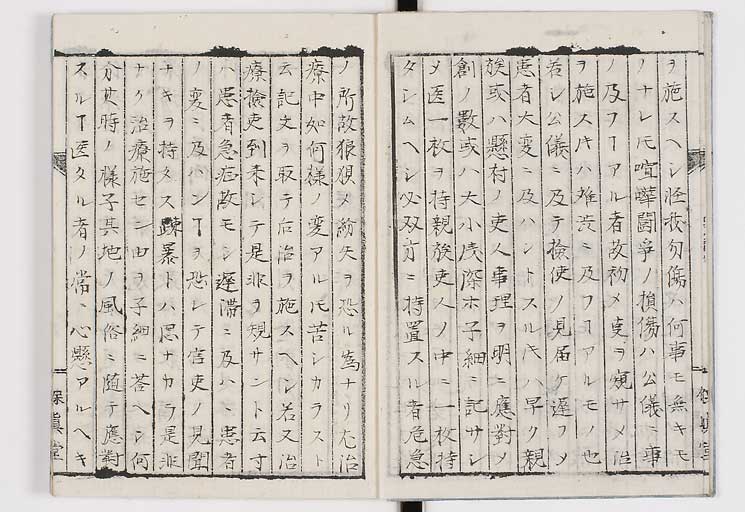 ヲ施スヘシ怪我勿傷ハ何事モ無キモ
ノナレ𪜈喧嘩鬪爭ノ損傷ハ公儀ニ事
ノ及フヿアル者故初メ吏ヲ窺サメ治
ヲ施スキハ難渋ニ及フヿアルモノ也
若シ公儀ニ及テ檢使ノ見届ケ遅フメ
患者大変ニ及ハントスル𪜈ハ早ク親
族或ハ懸村ノ吏人事理ヲ明ニ應對メ
創ノ數或ハ大小浅深ホ子細ニ記サシ
メ医一枚ヲ持親族吏人ノ中ニ一枚持
タシムヘシ必双方ニ持置スル者危急
ノ所故狼狽メ紛失ヲ恐ル為ナリ尤治
療中如何様ノ変アル𪜈苦シカラスト
云記文ヲ取テ后治ヲ施スヘシ若又治
療檢吏到来シテ是非ヲ規サント云寸
ハ患者急症故モシ遅滞ニ及ハヽ患者
ノ変ニ及ハンヿヲ恐レテ官吏ノ見聞
ナキヲ持タス疎暴トハ思ナカラ是非
ナク治療施セシ由ヲ子細ニ荅ヘシ何
分其時ノ様子其地ノ風俗ニ随テ應對
スルヿ医タル者ノ常ニ心懸アルヘキ
保眞堂